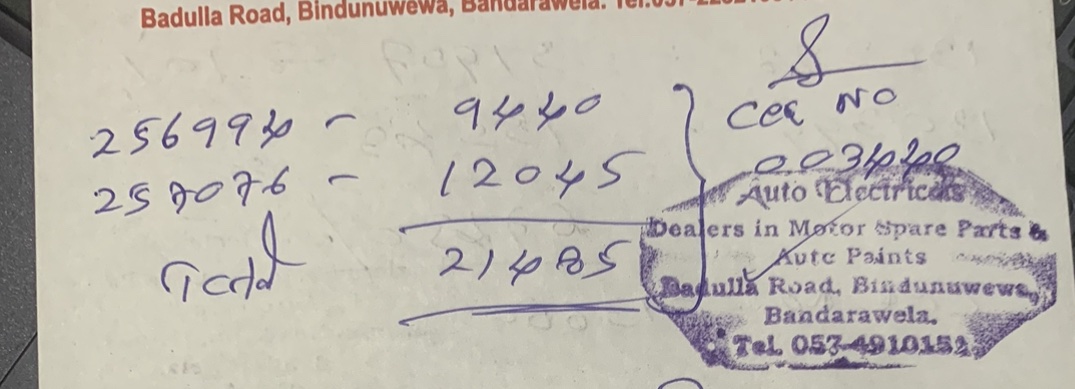 Badulla Road, Bindunuwewa, Bandarawela. Tel:057-
256994 - 9440
257076 - 12045
Total 21485
CEE NO
003440
Auto Electricals
Dealers in Motor Spare Parts &
Auto Paints
Badulla Road, Bindunuwewa,
Bandarawela.
Tel. 057-4910152